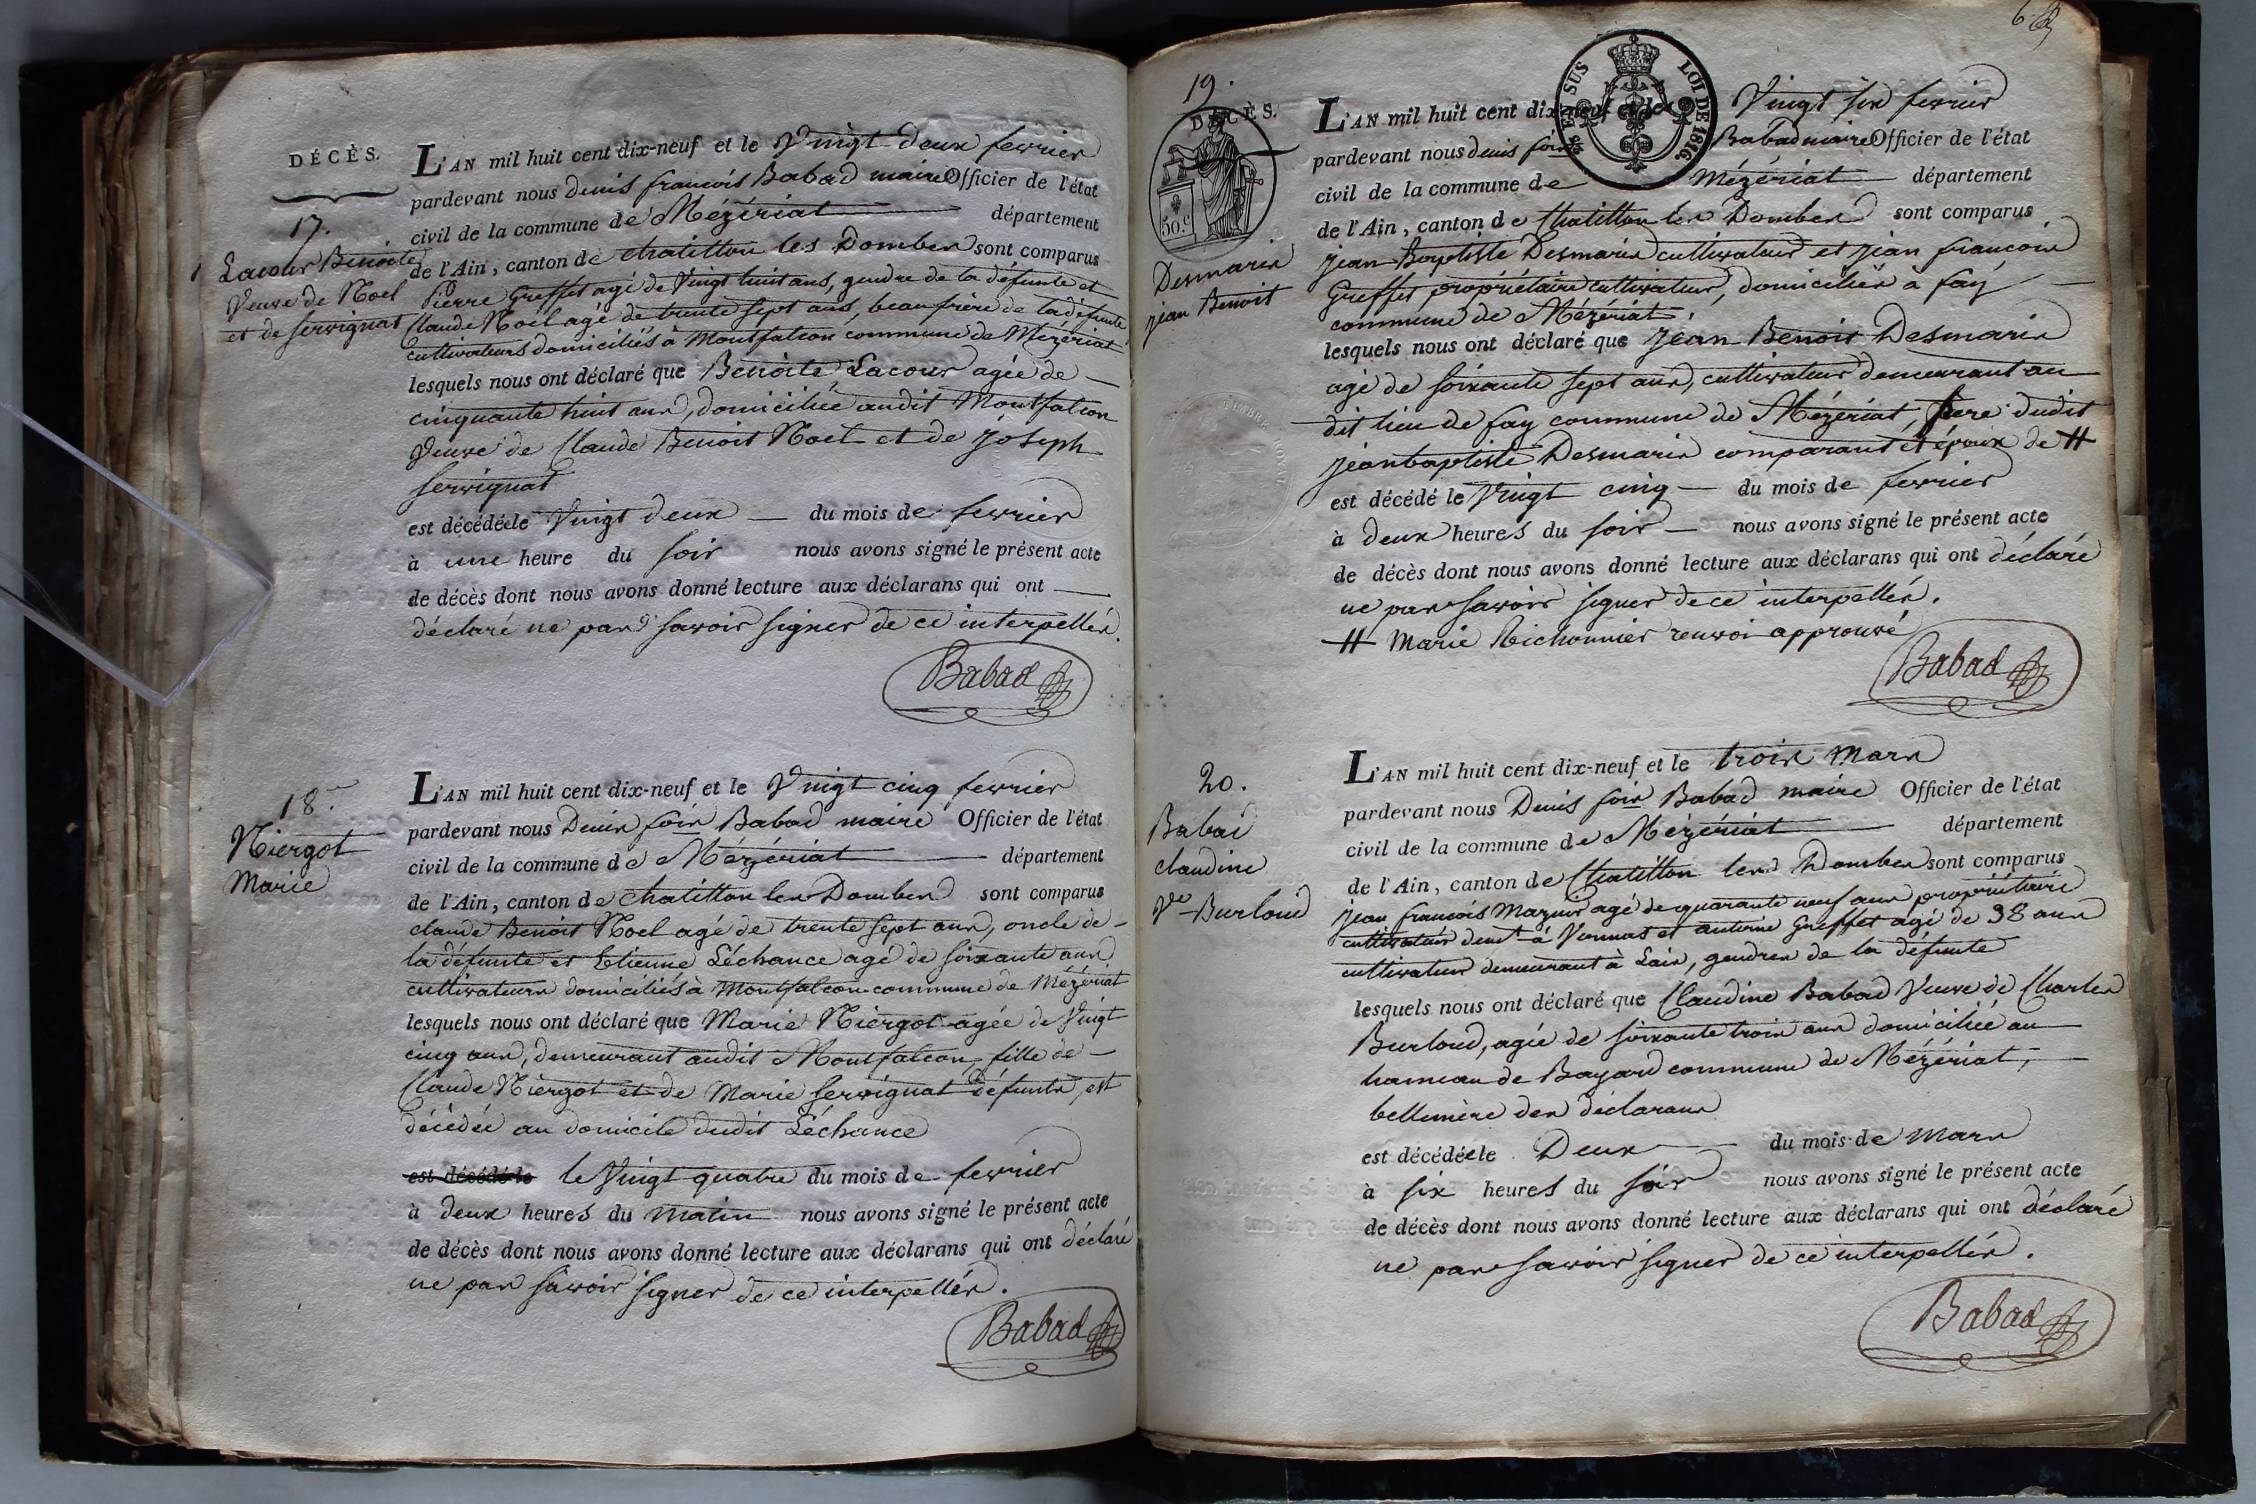 DÉCÈS.
17.
Lacour Benoite
Veuve de Noel
et de Servignat
L'AN mil huit cent dix-neuf et le Vingt deux fevrier
pardevant nous Denis françois Babad maire Officier de l'état
civil de la commune de Mézériat département
de l'Ain, canton de chatillon les Dombes sont comparus
Pierre Greffet agé de Vingt huit ans, gendre de la défunte et
Claude Noel agé de trente sept ans, beaufrère de la défunte
cultivateurs domiciliés à Montfalcon commune de Mézériat
lesquels nous ont déclaré que Benoite Lacour agée de
cinquante huit ans, domiciliée audit Montfalcon
Veuve de Claude Benoit Noel et de joseph
Servignat
est décédée le Vingt deux du mois de fevrier
à une heure du soir nous avons signé le présent acte
de décès dont nous avons donné lecture aux déclarans qui ont
déclaré ne pas savoir signer de ce interpellés.
Babad
18.
Niergot
Marie
L'AN mil huit cent dix-neuf et le Vingt cinq fevrier
pardevant nous Denis fois Babad maire Officier de l'état
civil de la commune de Mézériat département
de l'Ain, canton de chatillon les Dombes sont comparus
claude Benoit Noel agé de trente sept ans, oncle de
la défunte et Etienne Léchance agé de soixante ans
cultivateurs domiciliés à Montfalcon commune de Mézériat
lesquels nous ont déclaré que Marie Niergot agée de Vingt
cinq ans, demeurant audit Montfalcon, fille de
Claude Niergot et de Marie Servignat défunts, est
décédée au domicile dudit Léchance
est décédé le le Vingt quatre du mois de fevrier
à deux heures du matin nous avons signé le présent acte
de décès dont nous avons donné lecture aux déclarans qui ont déclaré
ne pas savoir signer de ce interpellés.
Babad
19.
DÉCÈS.
50.c
Desmaris
jean Benoit
EN SUS
LOI DE 1816.
L'AN mil huit cent dix-neuf et le Vingt six fevrier
pardevant nous denis fois Babad maire Officier de l'état
civil de la commune de Mézériat département
de l'Ain, canton de Chatillon les Dombes sont comparus
jean Baptiste Desmaris cultivateur et jean francois
Greffet, propriétaire cultivateur, domiciliés à fay
commune de Mézériat
lesquels nous ont déclaré que jean Benoit Desmaris
agé de soixante sept ans, cultivateur demeurant au
dit lieu de fay commune de Mézériat, frere dudit
jeanbaptiste Desmaris comparant et époux de #
est décédé le Vingt cinq du mois de fevrier
à deux heures du soir nous avons signé le présent acte
de décès dont nous avons donné lecture aux déclarans qui ont déclaré
ne pas savoir signer de ce interpellés.
# Marie Richonnier renvoi approuvé
Babad
20.
Babad
claudine
Ve Burloud
L'AN mil huit cent dix-neuf et le trois Mars
pardevant nous Denis fois Babad maire Officier de l'état
civil de la commune de Mézériat département
de l'Ain, canton de Chatillon les Dombes sont comparus
jean francois Mazuir agé de quarante neuf ans propriétaire
cultivateur demt à Vonnas et antoine Greffet agé de 38 ans
cultivateur demeurant à Lair, gendres de la défunte
lesquels nous ont déclaré que Claudine Babad Veuve de Charles
Burloud, agée de soixante trois ans domiciliée au
hameau de Bayard commune de Mézériat,
bellemère des déclarans
est décédée le Deux du mois de Mars
à six heures du soir nous avons signé le présent acte
de décès dont nous avons donné lecture aux déclarans qui ont déclaré
ne pas savoir signer de ce interpellés.
Babad